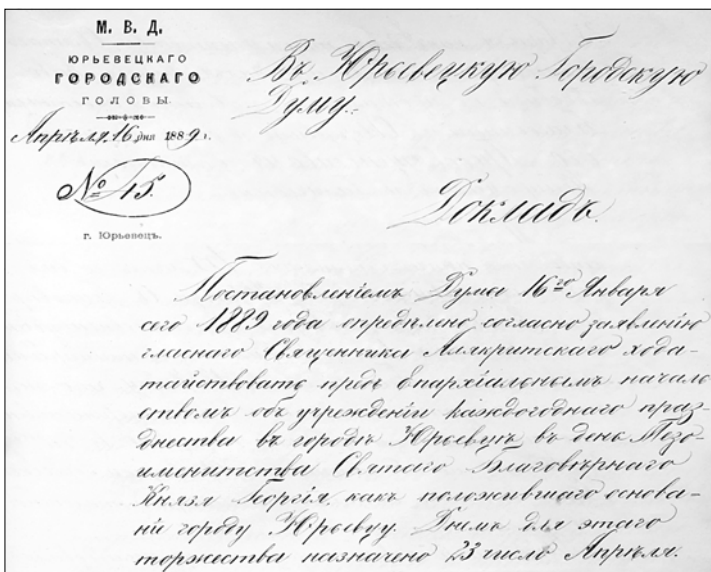 М. В. Д.
ЮРЬЕВЕЦКАГО
ГОРОДСКАГО
ГОЛОВЫ.
Апрѣля 16 дня 1889 г.
№ 45.
г. Юрьевецъ.
Въ Юрьевецкую Городскую
Думу.
Докладъ.
Постановленіемъ Думы 16го Января
сего 1889 года опредѣлено, согласно заявленію
гласнаго Священника Алякритскаго хода-
тайствовать предъ Епархіальнымъ началь
ствомъ объ учрежденіи каждогоднаго праз-
днества въ городѣ Юрьевцѣ въ день Тезо-
именитства Святаго Благовѣрнаго
Князя Георгія, какъ положившаго основа-
ніе городу Юрьевцу. Днемъ для этаго
торжества назначено 23 число Апрѣля.